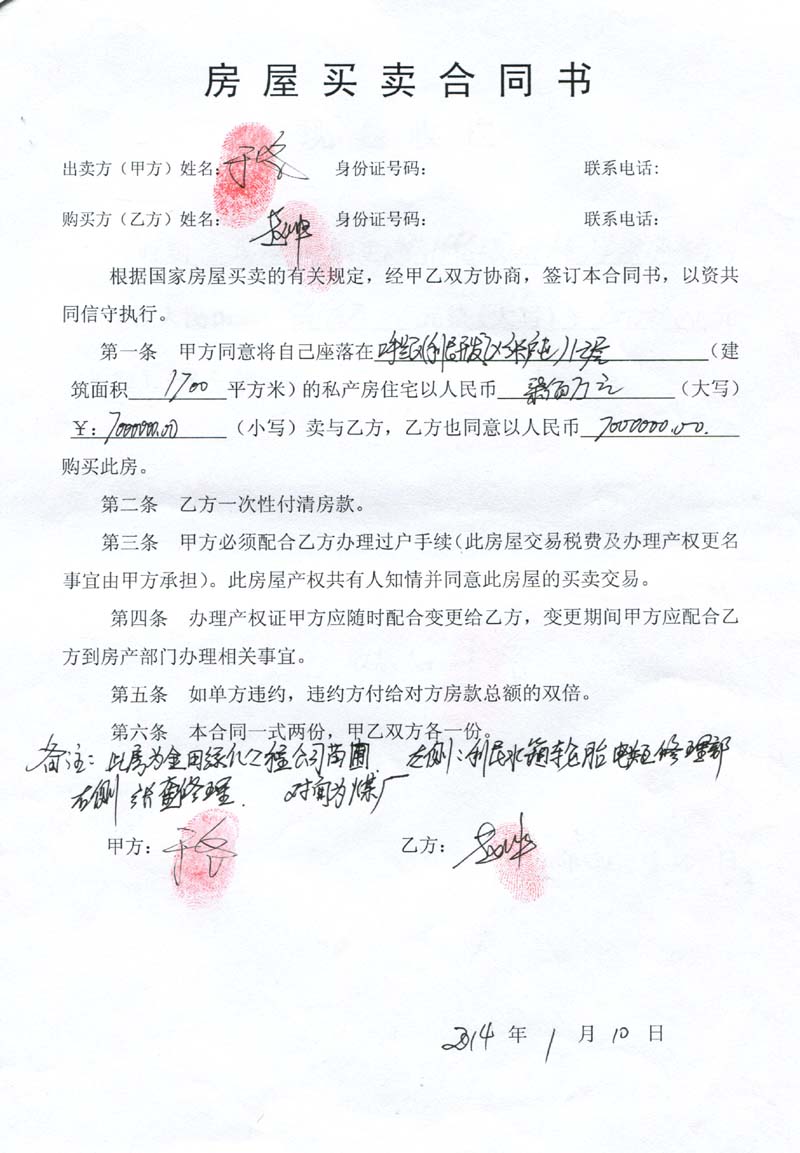 房屋买卖合同书
出卖方（甲方）姓名： 身份证号码： 联系电话：
购买方（乙方）姓名： 身份证号码： 联系电话：
根据国家房屋买卖的有关规定，经甲乙双方协商，签订本合同书，以资共
同信守执行。
第一条 甲方同意将自己座落在 （建
筑面积 1700 平方米）的私产房住宅以人民币 柒佰万元 （大写）
￥：7000000.00 （小写）卖与乙方，乙方也同意以人民币 7000000.00.
购买此房。
第二条 乙方一次性付清房款。
第三条 甲方必须配合乙方办理过户手续（此房屋交易税费及办理产权更名
事宜由甲方承担）。此房屋产权共有人知情并同意此房屋的买卖交易。
第四条 办理产权证甲方应随时配合变更给乙方，变更期间甲方应配合乙
方到房产部门办理相关事宜。
第五条 如单方违约，违约方付给对方房款总额的双倍。
第六条 本合同一式两份，甲乙双方各一份。
备注：此房为金田绿化工程公司苗圃 左侧：利民水箱轮胎电瓶修理部
右侧 修理. 对面为煤厂
甲方： 乙方：
2014 年 1 月 10 日